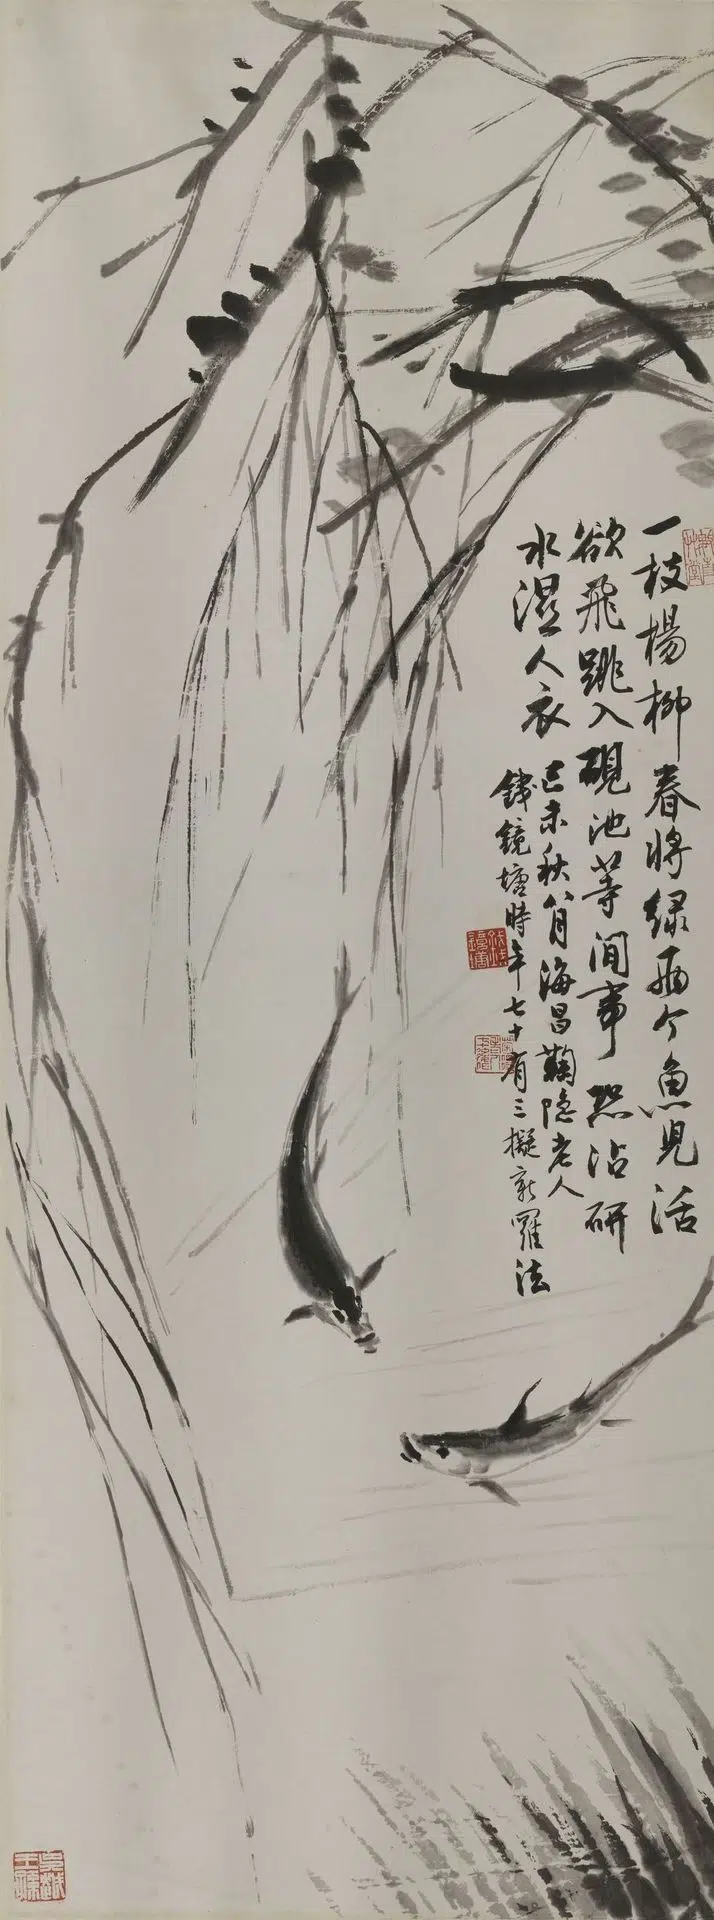 一枝楊柳春將绿两个魚児活
欲飛跳入硯池等閒事恐沾研
水湿人衣
己未秋八月海昌鞠隐老人
錢鏡塘時年七十有三擬新羅法